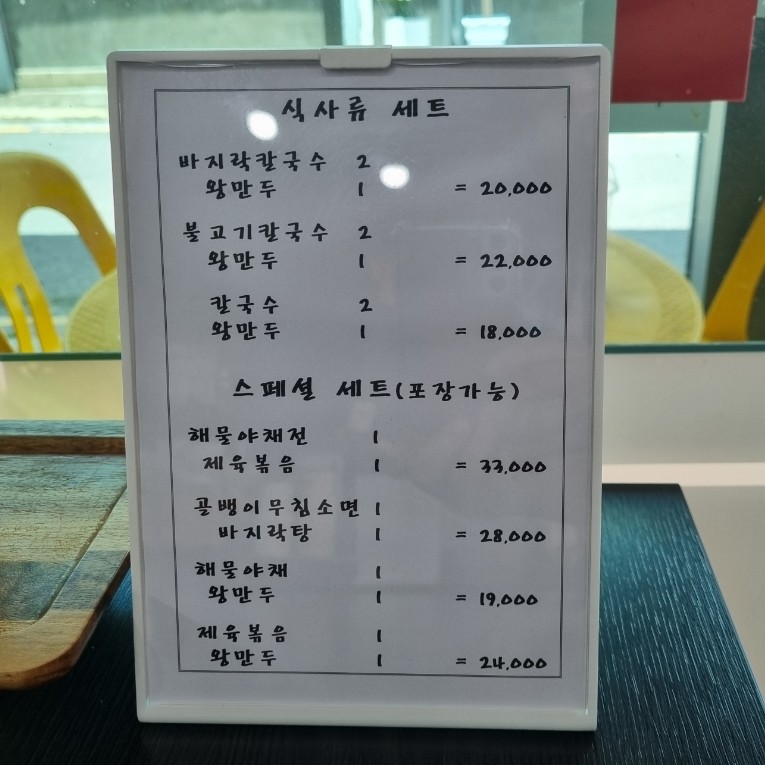 식사류 세트
바지락칼국수 2
왕만두 1 = 20,000
불고기칼국수 2
왕만두 1 = 22,000
칼국수 2
왕만두 1 = 18,000
스페셜 세트(포장가능)
해물야채전 1
제육볶음 1 = 33,000
골뱅이무침소면 1
바지락탕 1 = 28,000
해물야채 1
왕만두 1 = 19,000
제육볶음 1
왕만두 1 = 24,000